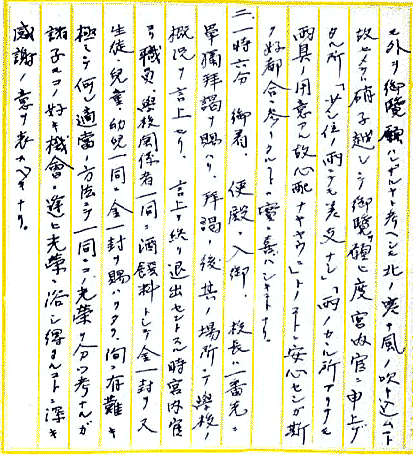 モ外ヲ御覧願ハレザルヤト考ヘシモ北ノ寒風ノ吹キ込ムコト
故セメテハ硝子越シニテ御覧ヲ願ヒ度宮内官ニ申上ゲ
タル所「少シ位ノ雨ニテモ差支ナシ」「雨ノカヽル所アリテモ
雨具ノ用意アル故心配ナキヤウ」トノコトニ安心センガ斯
ク好都合ニ参リタルコトハ實ニ喜ハシキコトナリ。
三、一時六分 御着、便殿ニ入御、 校長ハ一番先ニ
單獨拝謁ヲ賜ハリ、拝謁ノ後其ノ場所ニテ學校ノ
概況ヲ言上セリ、 言上ヲ終リ退出セントスル時宮内官
ヨリ職員學校関係者一同ニ酒饌料トシテ金一封ヲ又
生徒、兒童、幼兒一同ニ金一封ヲ賜ハリタリ、洵ニ有難キ
極ミニテ何レ適當ノ方法ニテ一同ニコノ光榮ヲ分ツ考ナルガ
諸子モコノ好キ機會ニ逢ヒ光榮ニ浴シ得タルコトニ深キ
感謝ノ意ヲ表スベキナリ。